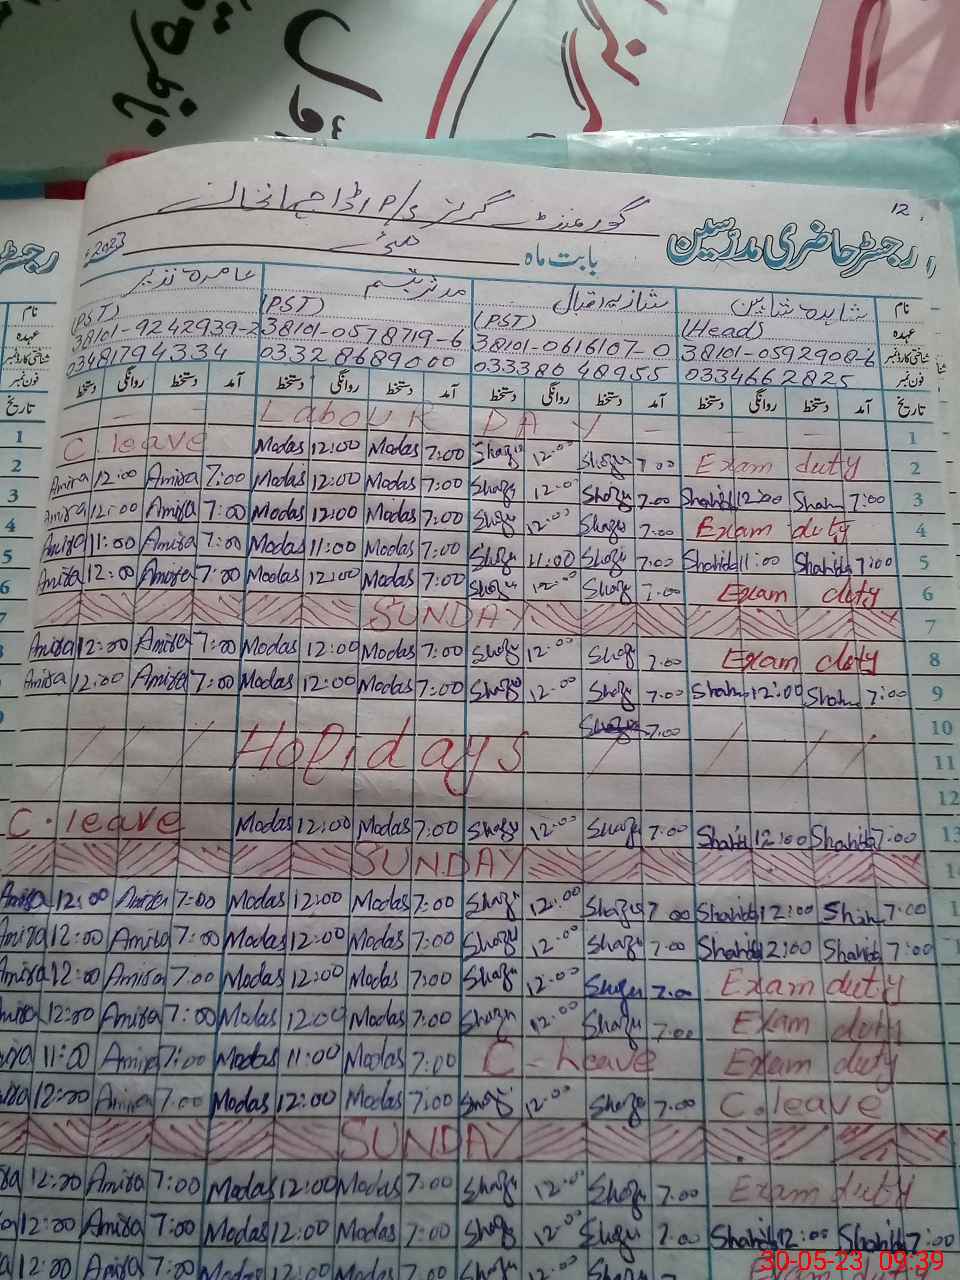 12
گورنمنٹ گرلز
رجسٹر حاضری مدرسین
بابت ماہ مئی 2023ء
نام شاہدہ شاہین شازیہ اقبال مدثر تبسم عامرہ نذیر
عہدہ (Head) (PST) (PST) (PST)
شناختی کارڈ نمبر 38101-0592908-6 38101-0616107-0 38101-0578719-6 38101-9242939-2
فون نمبر 03346662825 03338048955 03328689000 03481794334
تاریخ آمد دستخط روانگی دستخط آمد دستخط روانگی دستخط آمد دستخط روانگی دستخط آمد دستخط روانگی دستخط تاریخ
1 Labour DAY 1
2 C. leave Modas 12:00 Modas 7:00 Shazu 12.00 Shazu 7.00 Exam duty 2
3 Amira 12:00 Amira 7:00 Modas 12:00 Modas 7:00 Shazu 12.00 Shazu 7.00 Shahid 12:00 Shah 7:00 3
4 Amira 12:00 Amira 7:00 Modas 12:00 Modas 7:00 Shazu 12.00 Shazu 7.00 Exam duty 4
5 Amira 11:00 Amira 7:00 Modas 11:00 Modas 7:00 Shazu 11:00 Shazu 7.00 Shahid 11:00 Shahid 7:00 5
6 Amira 12:00 Amira 7:00 Modas 12:00 Modas 7:00 Shazu 12.00 Shazu 7.00 Exam duty 6
7 SUNDAY 7
Amira 12:00 Amira 7:00 Modas 12:00 Modas 7:00 Shazu 12.00 Shazu 7.00 Exam duty 8
Amira 12:00 Amira 7:00 Modas 12:00 Modas 7:00 Shazu 12.00 Shazu 7.00 Shah 12:00 Shah 7:00 9
7.00 10
Holidays 11
12
C. leave Modas 12:00 Modas 7:00 Shazu 12.00 Shazu 7.00 Shahid 12:00 Shahid 7:00 13
SUNDAY
Amira 12:00 Amira 7:00 Modas 12:00 Modas 7:00 Shazu 12.00 Shazu 7.00 Shahid 12:00 Shah 7:00
Amira 12:00 Amira 7:00 Modas 12:00 Modas 7:00 Shazu 12.00 Shazu 7.00 Shahid 12:00 Shahid 7:00
Amira 12:00 Amira 7.00 Modas 12:00 Modas 7:00 Shazu 12.00 Shazu 7.00 Exam duty
12:00 Amira 7:00 Modas 12:00 Modas 7:00 Shazu 12.00 Shazu 7.00 Exam duty
11:00 Amira 7:00 Modas 11:00 Modas 7:00 C-Leave Exam duty
12:00 Amira 7.00 Modas 12:00 Modas 7:00 Shazu 12.00 Shazu 7.00 C. leave
SUNDAY
12:00 Amira 7:00 Modas 12:00 Modas 7:00 Shazu 12.00 Shazu 7.00 Exam duty
12:00 Amira 7:00 Modas 12:00 Modas 7:00 Shazu 12.00 Shazu 7.00 Shahid 12:00 Shahid 7:00
12:00 Amira 7:00 Modas 12:00 Modas 7:00 Shazu 12.00 Shazu 7.00 Exam
30-05-23 09:39